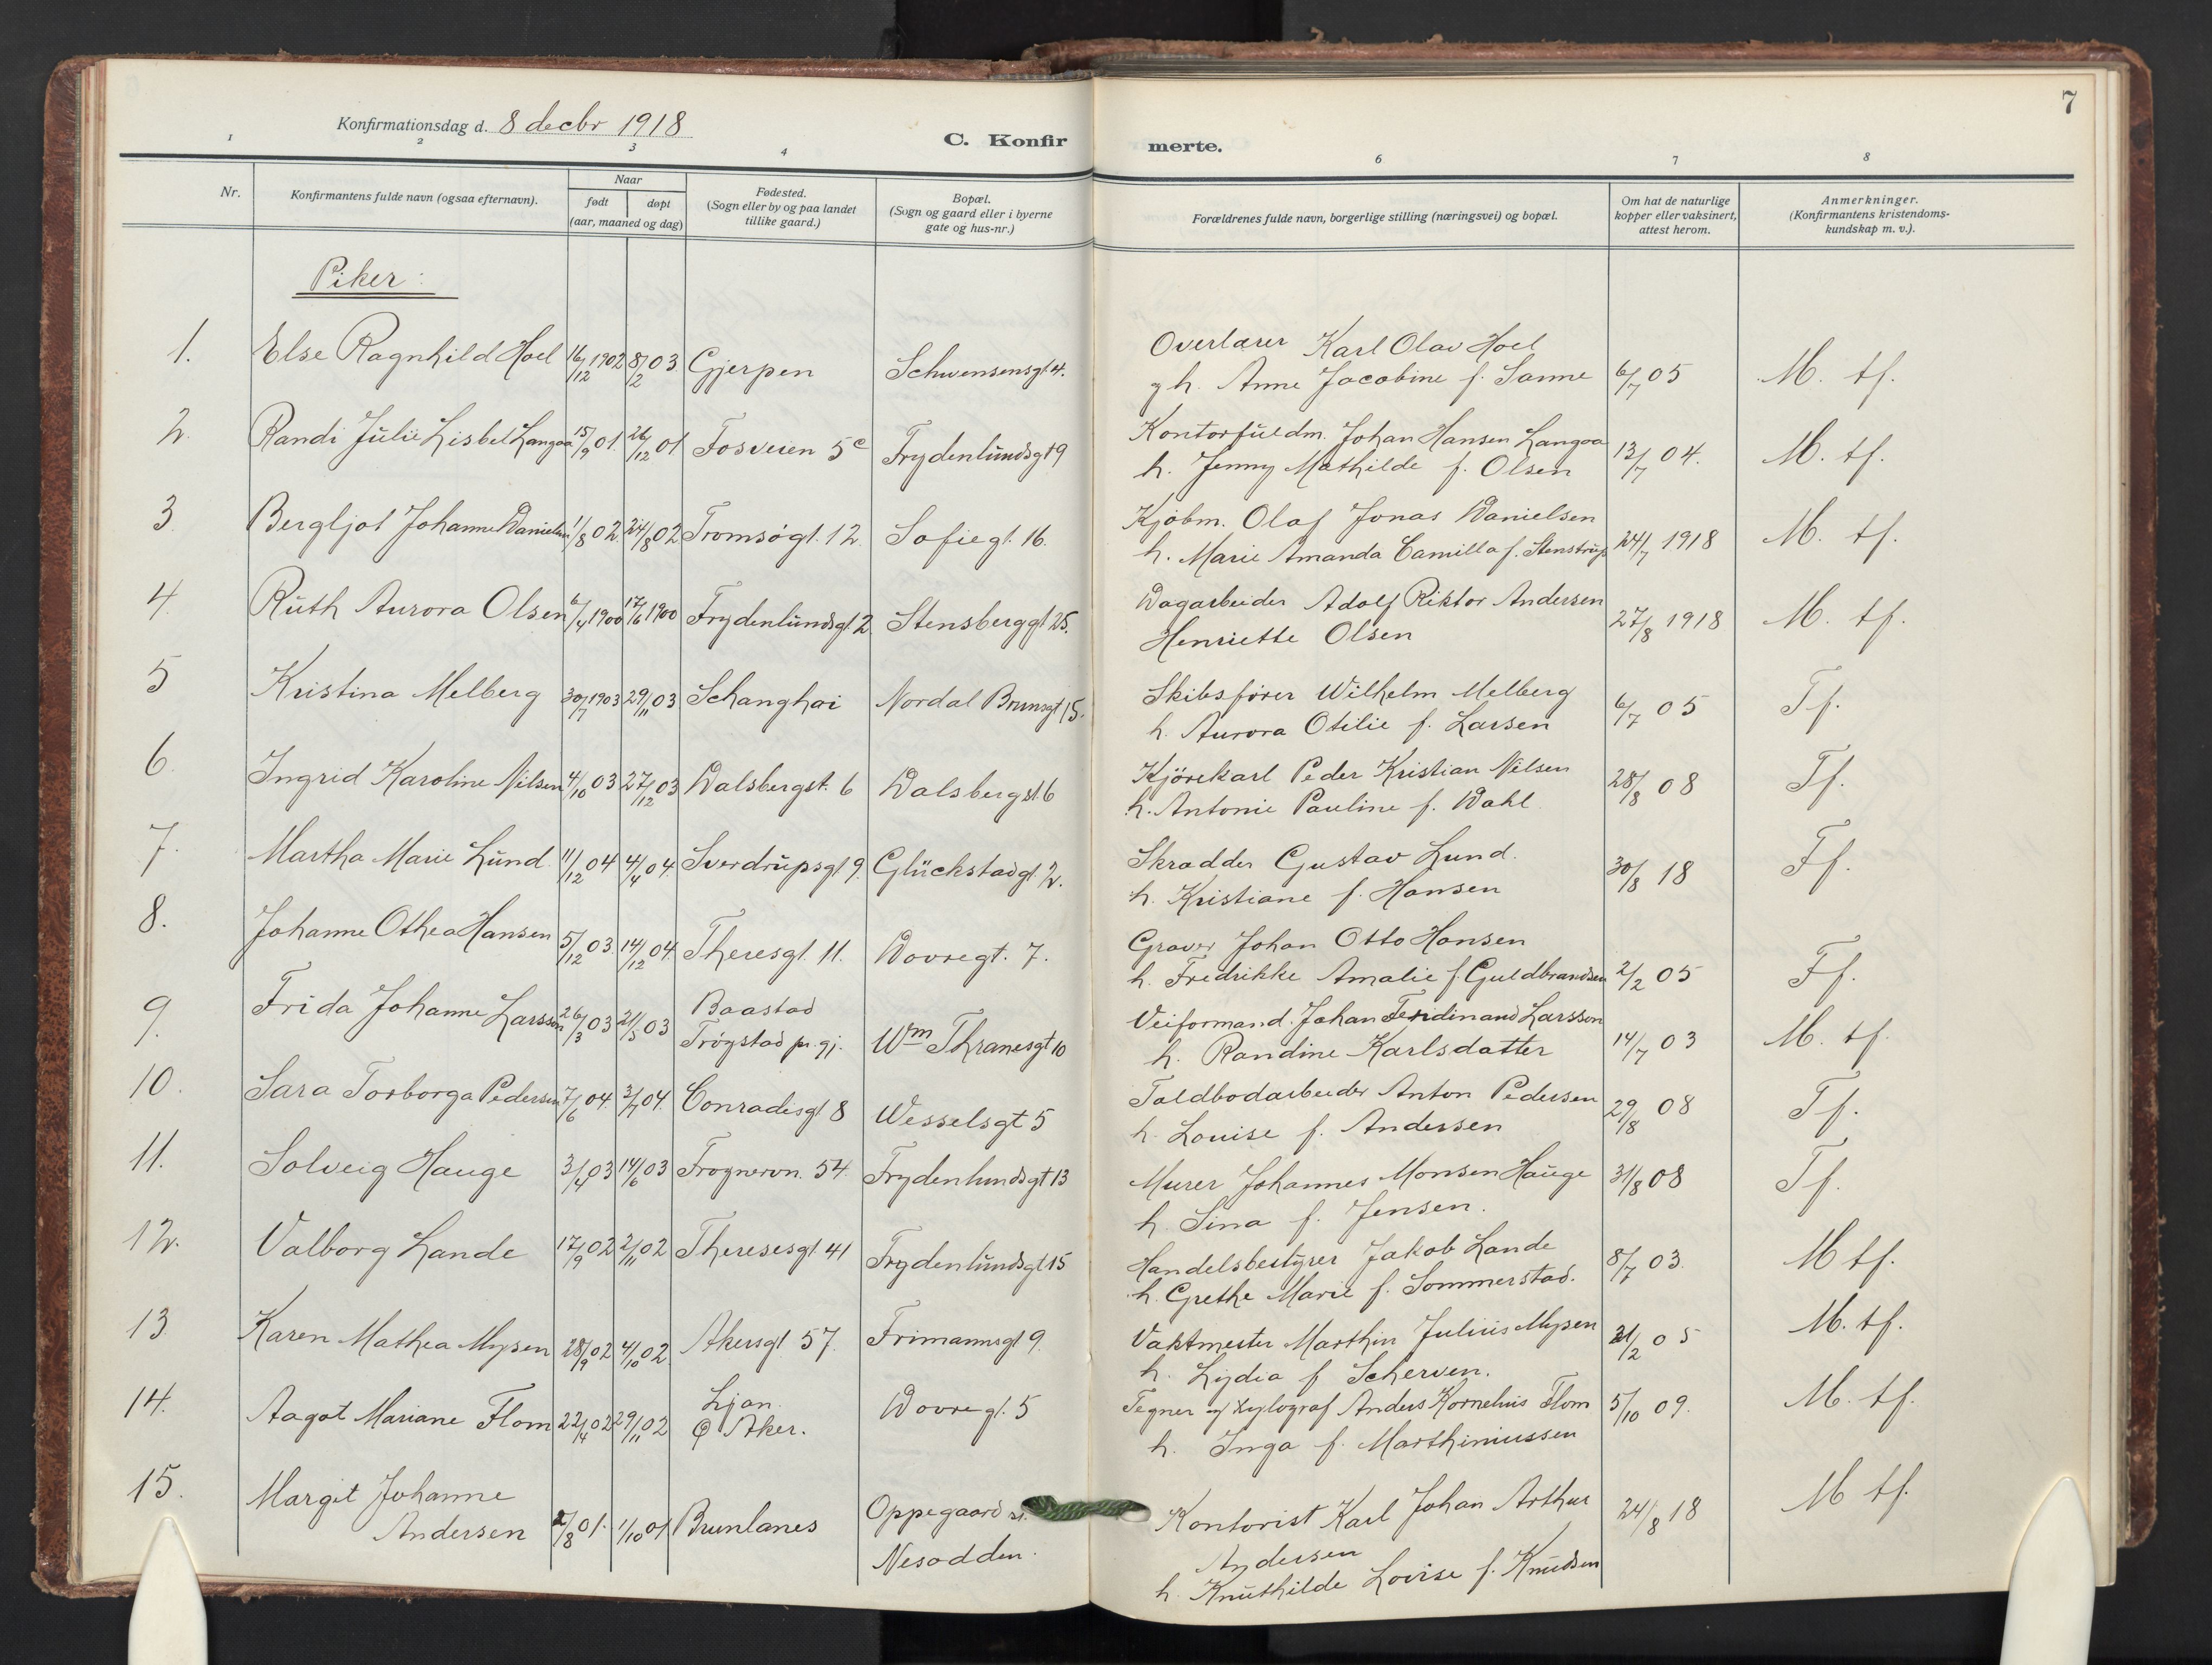 7
Konfirmationsdag d. 8 decbr 1918
C. Konfir merte.
1 2 3 4 6 7 8
Nr.
Konfirmantens fulde navn (ogsaa efternavn).
Naar
født døpt
(aar, maaned og dag)
Fødested.
(Sogn eller by og paa landet
tillike gaard.)
Bopæl.
(Sogn og gaard eller i byerne
gate og hus-nr.)
Forældrenes fulde navn, borgerlige stilling (næringsvei) og bopæl.
Om hat de naturlige
kopper eller vaksinert,
attest herom.
Anmerkninger.
(Konfirmantens kristendoms-
kundskap m. v.).
Piker:
1. Else Ragnhild Hoel 16/12 1902 8/2 03 Gjerpen Schwensensgt 4.
Overlærer Karl Olav Hoel
g h. Anne Jacobine f. Sanne 6/7 05 M. tf.
2. Randi Julie Lisbet Langaa 15/9 01. 26/12 01 Fosveien 5c Frydenlundsgt 9
Kontorfuldm. Johan Hansen Langaa
h. Jenny Mathilde f. Olsen 13/7 04. M. tf.
3. Bergljot Johanne Danielsen 1/8 02. 24/8 02 Tromsøgt. 12. Sofiegt. 16.
Kjøbm. Olaf Jonas Danielsen
h. Marie Amanda Camilla f. Stenstrup 24/7 1918 M. tf.
4. Ruth Aurora Olsen 6/4 1900 17/6 1900 Frydenlundsgt. 2 Stensberggt 25.
Dagarbeider Adolf Riktor Andersen
Henriette Olsen 27/8 1918 M. tf.
5 Kristina Melberg 30/7 1903 29/11 03 Schanghai Nordal Brunsgt 15.
Skibsfører Wilhelm Melberg
h. Aurora Otilie f. Larsen 6/7 05 Tf.
6. Ingrid Karoline Nilsen 4/10 03 27/12 03 Dalsbergst. 6 Dalsbergst 6
Kjørekarl Peder Kristian Nilsen
h. Antonie Pauline f. Dahl 28/8 08 Tf.
7. Martha Marie Lund 11/12 04 4/4 04. Sverdrupsgt 9. Glückstadgt. 2.
Skradder Gustav Lund.
h. Kristiane f. Hansen 30/8 18 Tf.
8. Johanne Othea Hansen 5/12 03. 14/12 04. Theresgt. 11. Dovregt. 7.
Graver Johan Otto Hansen
h. Fredrikke Amalie f. Guldbrandsen 2/2 05 Tf.
9. Frida Johanne Larsson 26/3 03 21/5 03 Baastad
Trøgstad pr.gj. Wm Thranesgt 10
Veiformand. Johan Ferdinand Larsson
h. Randine Karlsdatter 14/7 03 M. tf.
10. Sara Torborga Pedersen 7/6 04. 3/7 04. Conradisgt 8 Wesselsgt 5
Toldbodarbeider Anton Pedersen
h. Louise f. Andersen 29/8 08 Tf.
11. Solveig Hauge 3/4 03 14/6 03 Frognervn. 54. Frydenlundsgt 13
Murer Johannes Monsen Hauge
h. Sina f. Jensen. 31/8 08 Tf.
12. Valborg Lande 17/9 02 2/11 02 Theresesgt 41 Frydenlundsgt 15
Handelsbestyrer Jakob Lande
h. Grethe Marie f. Sommerstad. 8/7 03. M tf.
13 Karen Mathea Mysen 28/9 02 4/10 02. Akersgt 57. Frimannsgt 9.
Vaktmester Marthin Julius Mysen
h. Lydia f Scherven. 21/2 05 M. tf.
14. Aagot Mariane Flom 22/4 02 29/11 02 Ljan
Ø Aker. Dovregt. 5
Tegner og xylograf Anders Kornelius Flom
h. Inga f. Marthiniussen 5/10 09. M. tf.
15. Margit Johanne
Andersen 2/8 01. 1/10 01 Brunlanes Oppegaard st.
Nesodden.
Kontorist Karl Johan Arthur
Andersen
h. Knuthilde Lovise f. Knudsen 24/8 18 M tf.